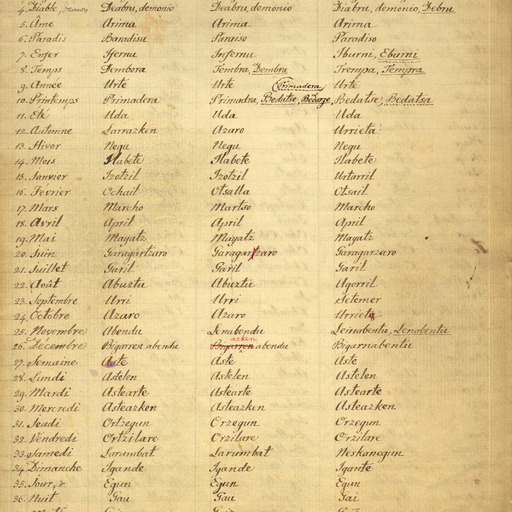 4. Diable, demon Deabru, demonio Deabru, demonio Diabru, demonio, Debru
5. Âme Arima Arima Arima
6. Paradis Baradisu Paraiso Paradiso
7. Enfer Ifernu Infernu Iburni, Eburni
8. Temps Dembora Tembra, Dembra Trempa, Tempra
9. Année Urte Urte Urte
Primadera
10. Printemps Primadera Primadra, Bedatse, Bedarze Bedatse, Bedatsa
11. Eté Uda Uda Uda
12. Automne Larrazken Azaro Urrieta
13. Hiver Negu Negu Negu
14. Mois Ilabete Ilabete Ilabete
15. Janvier Izotzil Izotzil Urtarril
16. Fevrier Cehail Otsalla Otsail
17. Mars Marcho Martso Marcho
18. Avril April April April
19. Mai Mayatz Mayatz Mayatz
20. Juin Garagartzaro Garagartzaro Garagarzaro
21. Juillet Garil Garil Garil
22. Août Abuztu Abuztu Agorril
23. Septembre Urri Urri Setemer
24. Octobre Azaro Azaro Urrieta
25. Novembre Abendu Lenabendu Leinabentu, Lenabentu
azken
26. Décembre Bigarren abendu Bigarren abendu Bigarnabentu
27. Semaine Aste Aste Aste
28. Lundi Astelen Astelen Astelen
29. Mardi Astearte Astearte Astearte
30. Mercredi Asteazken Asteazken Asteazken
31. Jeudi Ortzegun Orzegun Orzegun
32. Vendredi Ortzilare Orzilare Orzilare
33. Samedi Larumbat Larumbat Neskanegun
34. Dimanche Igande Igande Igante
35. Jour, Egun Egun Egun
36. Nuit Gau Gau Gai